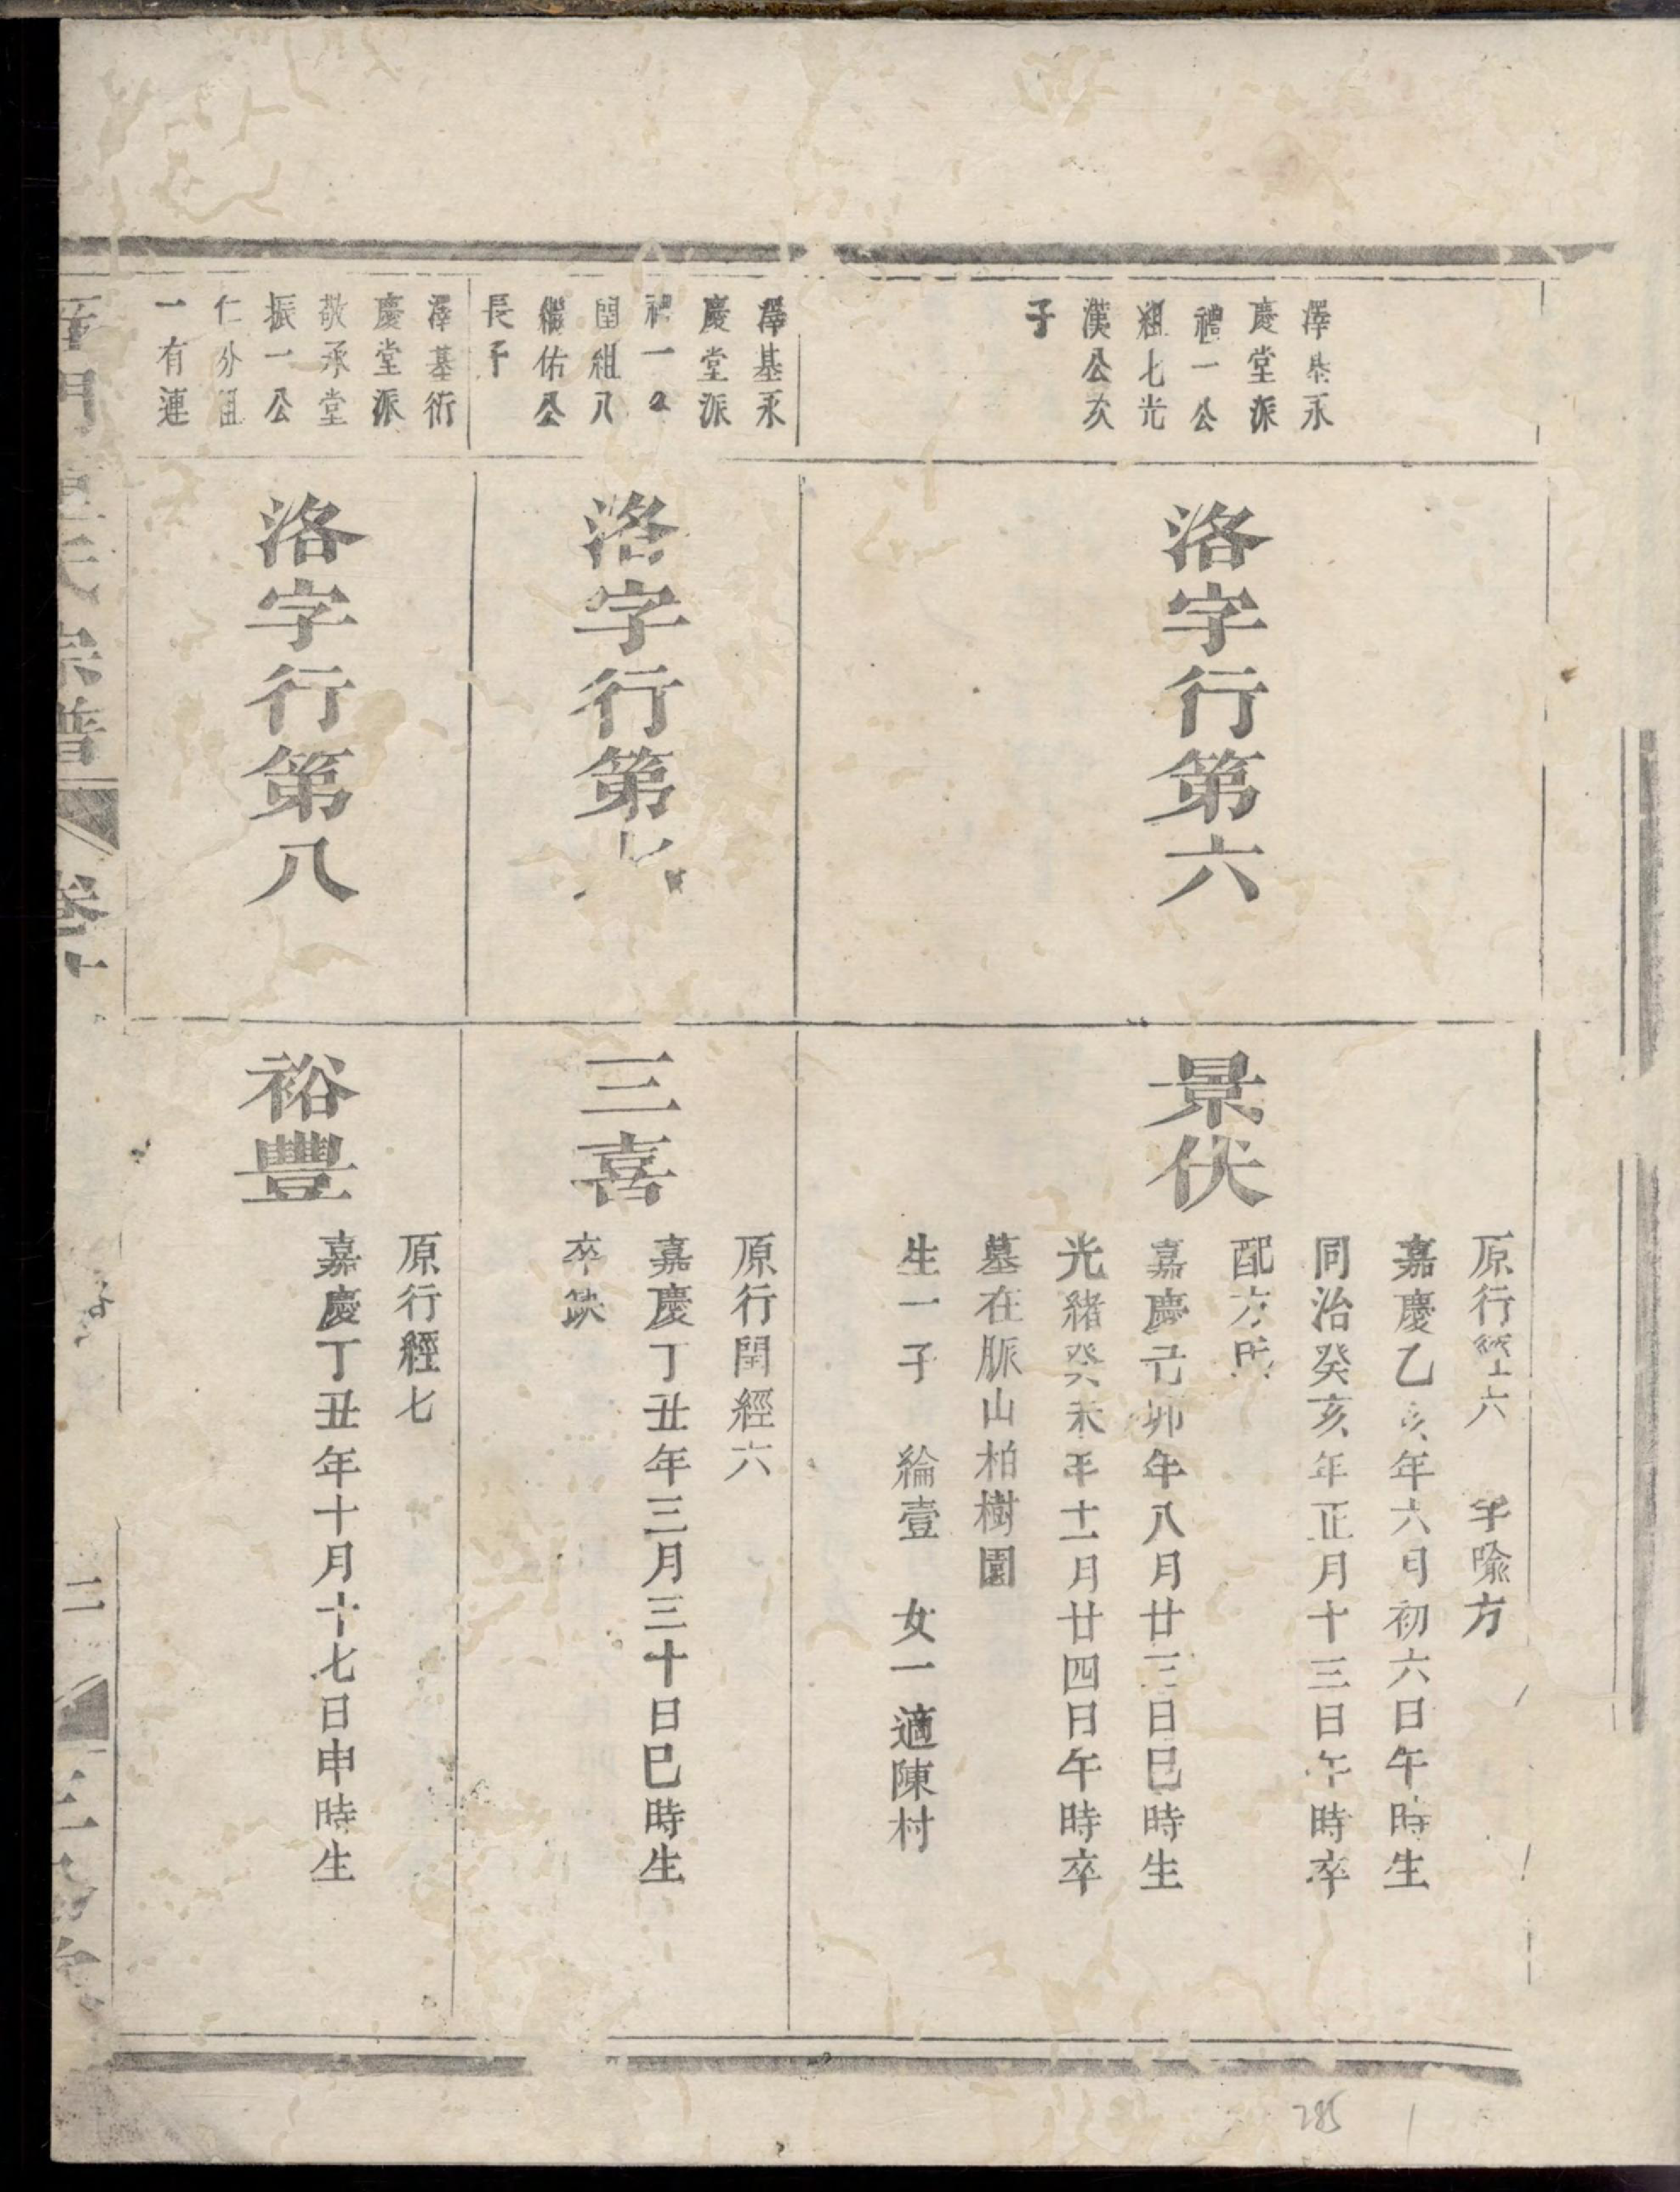 澤基永
慶堂派
禮一公
祖七光
漢公次
子
洛字行第六
景伏
原行經六 字喻方
嘉慶乙亥年六月初六日午時生
同治癸亥年正月十三日午時卒
配方氏
嘉慶己卯年八月廿三日巳時生
光緒癸未年十一月廿四日午時卒
墓在脈山柏樹園
生一子 綸壹 女一適陳村
澤基永
慶堂派
禮一公
閏祖八
繼佑公
長子
洛字行第七
三喜
原行閏經六
嘉慶丁丑年三月三十日巳時生
卒缺
澤基衍
慶堂派
敬承堂
振一公
仁分祖
一有連
洛字行第八
裕豐
原行經七
嘉慶丁丑年十月十七日申時生
氏宗譜 卷十 二
285